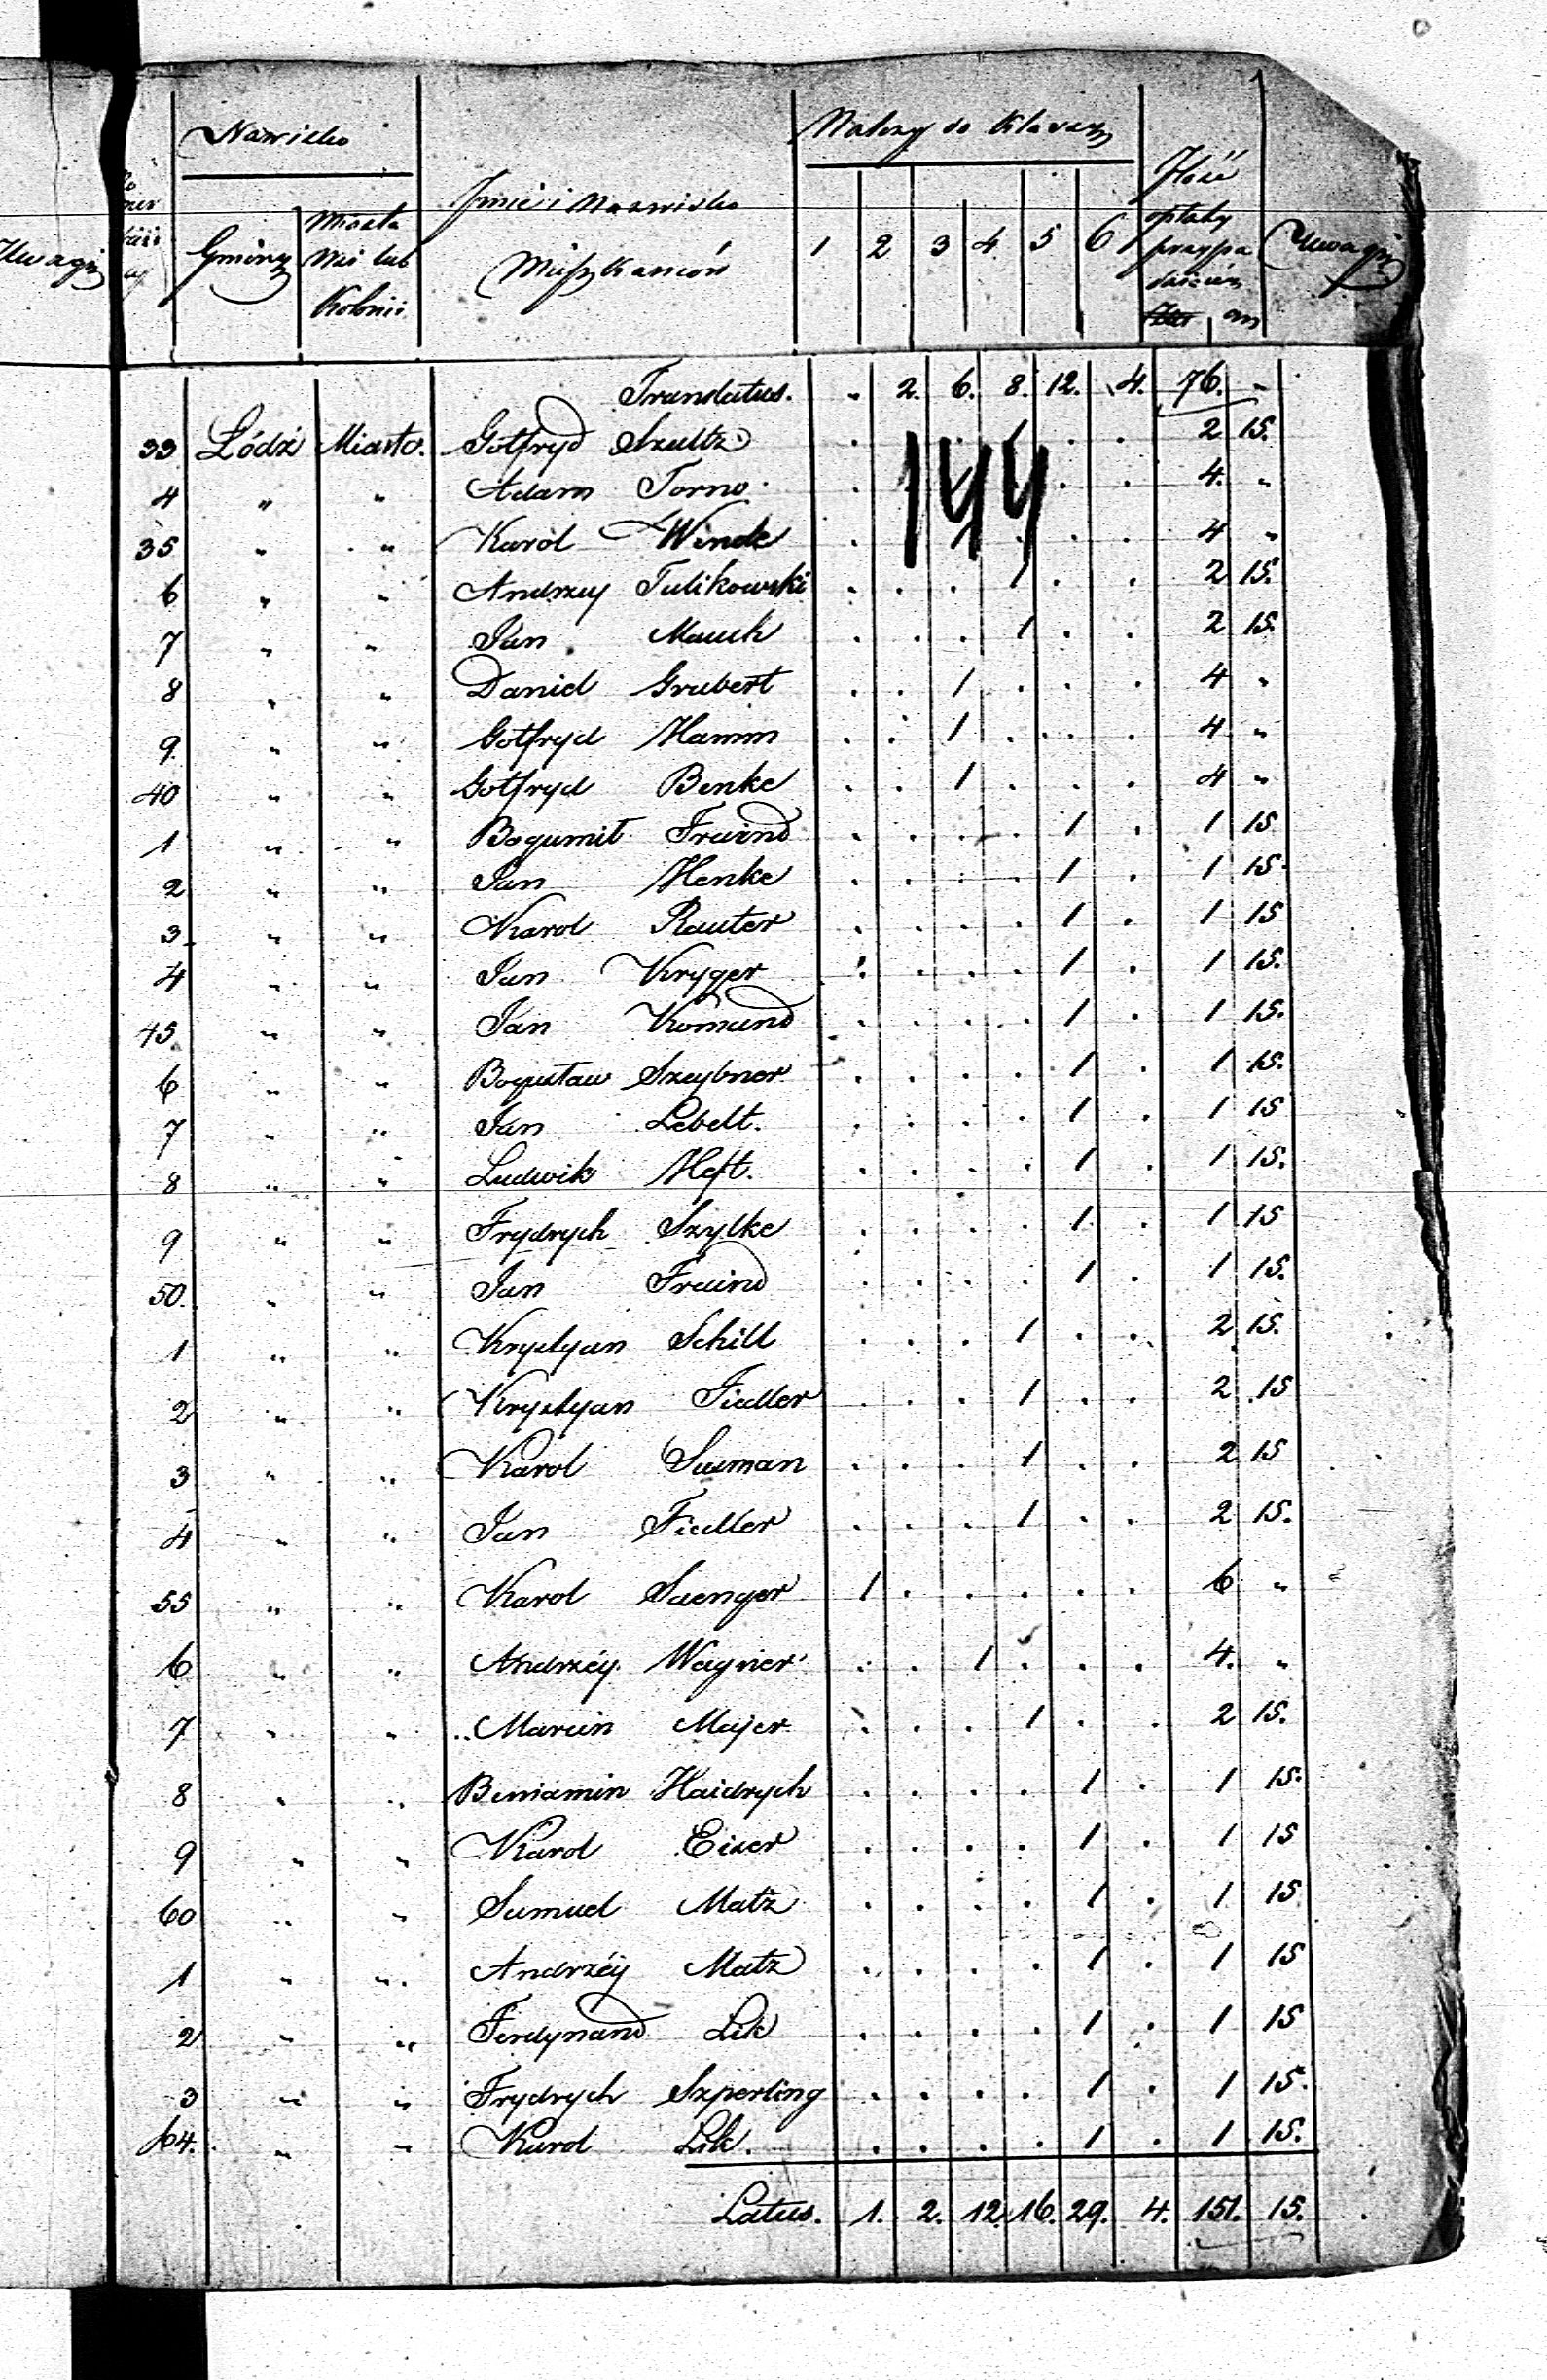 Nazwisko
Należy do Klassy
Gminy
Miasta
Wsi lub
Kolonii
Jmie i Nazwisko
Mieszkanców
1 2 3 4. 5 6
Ilość
opłaty
przypa
Uwagi
Uwagi
Translatus. " 2. 6. 8. 12. 4. 76. "
33 Łódź Miasto. Gotfryd Szultz . . 2 15.
4 " " Adam Torno . . 4. "
35 " " Karol Winde . . 4 "
6 " " Andrzey Tulikowski . . . 1 . . 2 15.
7 " " Jan Mauch . . . 1 . . 2 15.
8 " " Daniel Grubert . . 1 . . . 4 "
9. " " Gotfryd Hamm . . 1 . . . 4 "
40 " " Gotfryd Benke . . 1 . . . 4 "
1 " " Bogumił Fraind . . . . 1 . 1 15
2 " " Jan Henke . . . . 1 . 1 15.
3 " " Karol Rauter . . . . 1 . 1 15
4 " " Jan Kryger . . . . 1 . 1 15.
45 " " Jan Komund . . . . 1 . 1 15.
6 " " Bogusław Szeybner . . . . 1 . 1 15.
7 " " Jan Lebelt. . . . . 1 . 1 15
8 " " Ludwik Heft. . . . . 1 . 1 15.
9 " " Frydrych Szylke . . . . 1 . 1 15
50. " " Jan Fraind . . . . 1 . 1 15.
1 " " Krystyan Schill . . . 1 . . 2 15.
2 " " Krystyan Fiedler . . . 1 . . 2 15
3 " " Karol Susman . . . 1 . . 2 15
4 " " Jan Fiedler . . . 1 . . 2 15.
55 " " Karol Saenger 1 . . . . . 6 "
6 " " Andrzéy Wagner . . 1 . . . 4. "
7 " " Marcin Majer . . . 1 . . 2 15.
8 " " Beniamin Haidrych . . . . 1 . 1 15.
9 " " Karol Eizer . . . . 1 . 1 15
60 " " Samuel Matz . . . . 1 . 1 15
1 " " Andrzéy Matz . . . . 1 . 1 15
2 " " Ferdynand Lik . . . . 1 . 1 15
3 " " Frydrych Szperling . . . . 1 . 1 15.
64. " " Karol Lik. . . . . 1 . 1 15.
144
Latus. 1. 2. 12. 16. 29. 4. 151. 15.